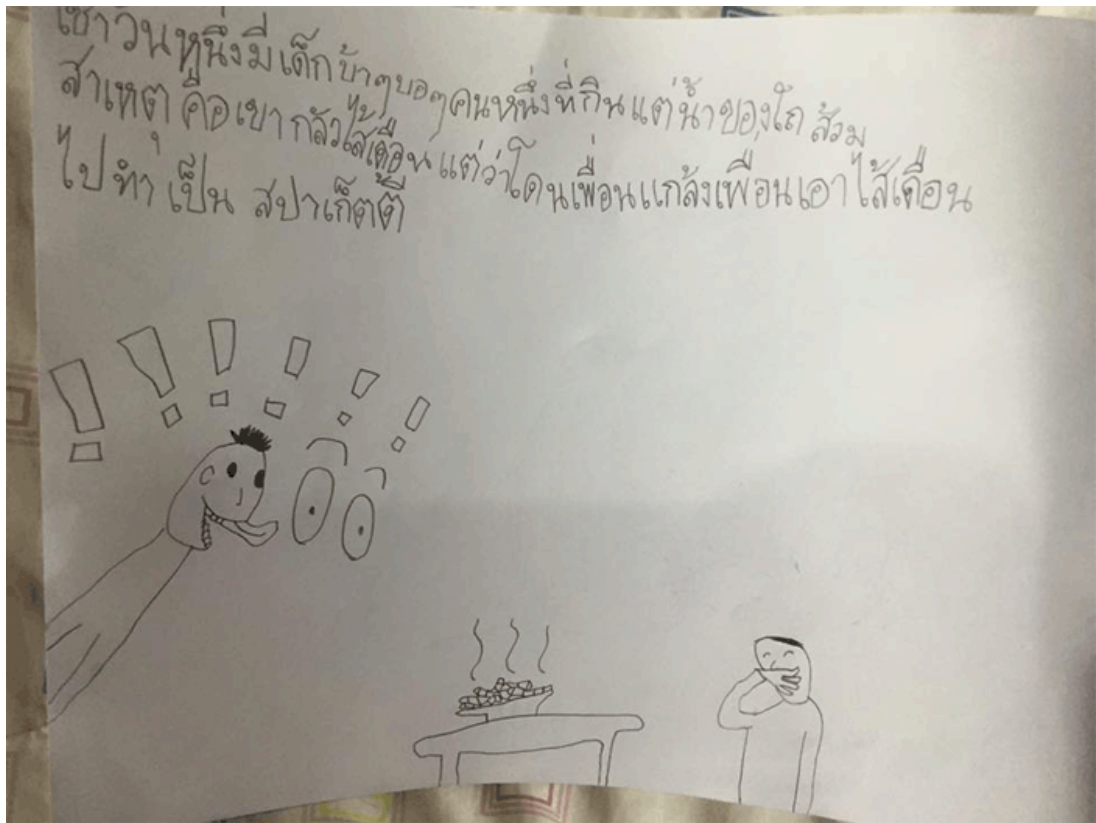 เช้าวันหนึ่งมีเด็กบ้าๆบอๆคนหนึ่งที่กินแต่น้ำของโถส้วม
สาเหตุ คือ เขากลัวไส้เดือน แต่ว่าโดนเพื่อนแกล้งเพื่อนเอาไส้เดือน
ไปทำเป็น สปาเก็ตตี้